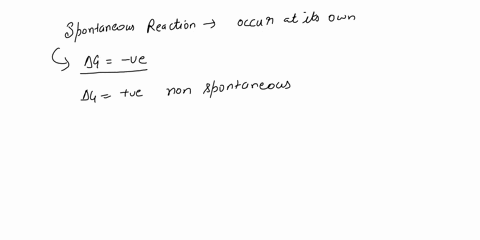 Spontaneous Reaction → occur at its own
ΔG = -ve
ΔG = +ve non spontaneous